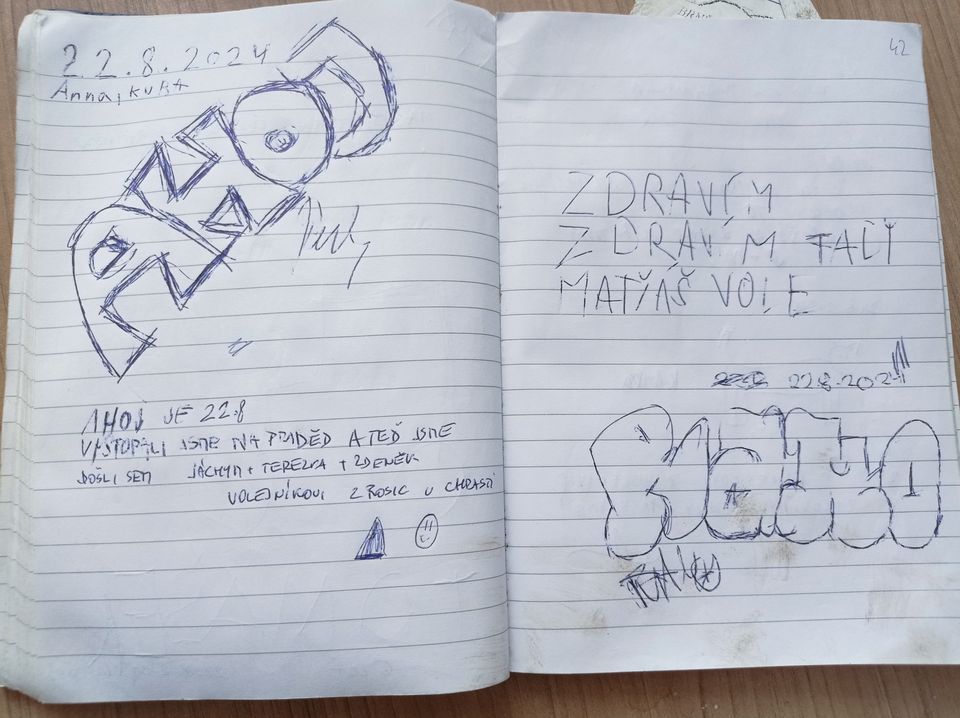 22.8.2024
Anna, KUBA
AHOJ JE 22.8
VYSTOPALI JSME NA PRADĚD A TEĎ JSME
DOŠLI SEM JÁCHYM + TEREZKA + ZDENĚK
VOLEJNÍKOVI Z ROSIC U CHRASTI
42
ZDRAVÍM
ZDRAVÍM TADY
MATYÁŠ VOLE
22.8.2024